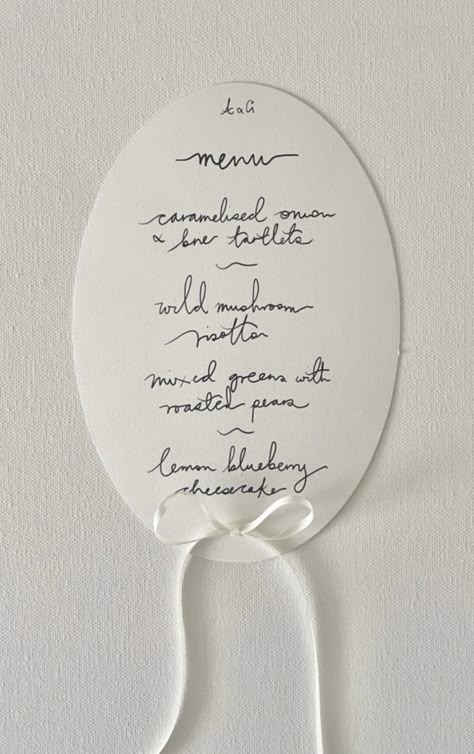 menu
caramelised onion
& brie tartlets
wild mushroom
risotto
mixed greens with
roasted pears
lemon blueberry
cheesecake